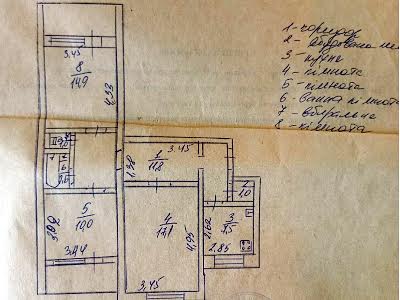 1 - коридор
2 - вбудована
3 - кухня
4 - кімната
5 - кімната
6 - ванна кімната
7 - вбиральня
8 - кімната
3.45
8
14,9
4,33
1
11,8
3.45
1,38
2
1,0
5
10,0
3,02
3,44
4
17,1
4,95
3,45
3
7,5
2,62
2.85
6